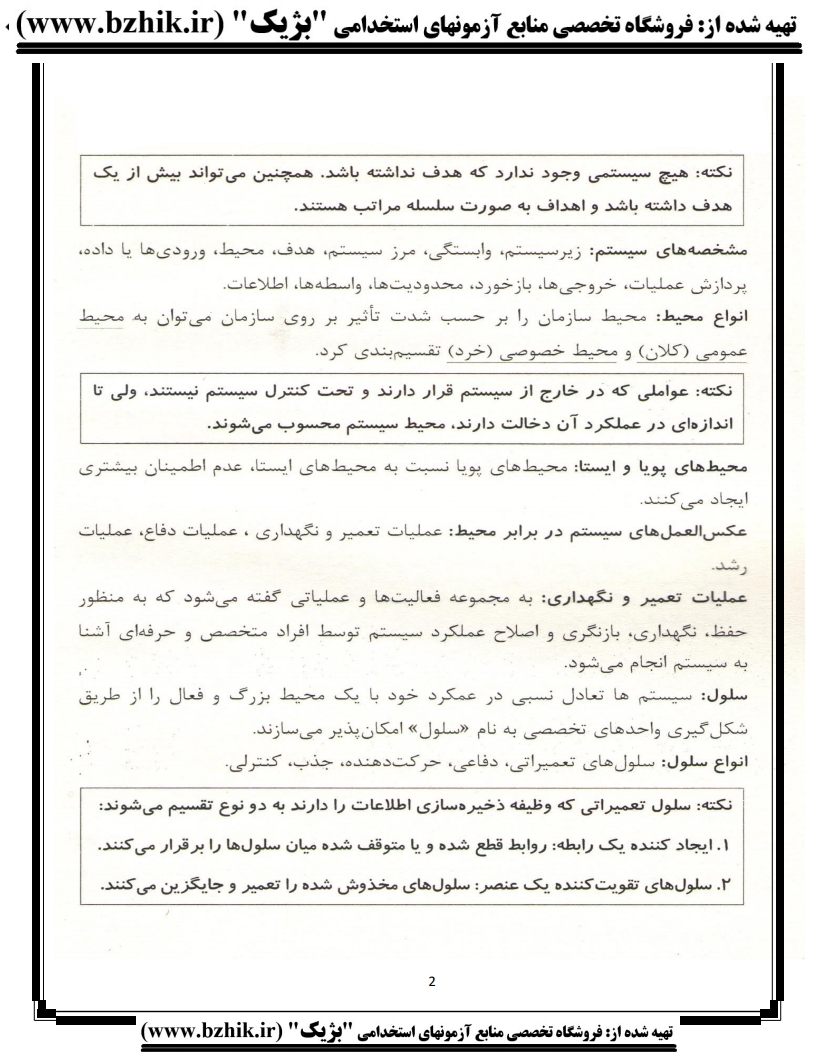 تهیه شده از: فروشگاه تخصصی منابع آزمونهای استخدامی "بژیک" (www.bzhik.ir)
نکته: هیچ سیستمی وجود ندارد که هدف نداشته باشد. همچنین می‌تواند بیش از یک
هدف داشته باشد و اهداف به صورت سلسله مراتب هستند.
مشخصه‌های سیستم: زیرسیستم، وابستگی، مرز سیستم، هدف، محیط، ورودی‌ها یا داده،
پردازش عملیات، خروجی‌ها، بازخورد، محدودیت‌ها، واسطه‌ها، اطلاعات.
انواع محیط: محیط سازمان را بر حسب شدت تأثیر بر روی سازمان می‌توان به محیط
عمومی (کلان) و محیط خصوصی (خرد) تقسیم‌بندی کرد.
نکته: عواملی که در خارج از سیستم قرار دارند و تحت کنترل سیستم نیستند، ولی تا
اندازه‌ای در عملکرد آن دخالت دارند، محیط سیستم محسوب می‌شوند.
محیط‌های پویا و ایستا: محیط‌های پویا نسبت به محیط‌های ایستا، عدم اطمینان بیشتری
ایجاد می‌کنند.
عکس‌العمل‌های سیستم در برابر محیط: عملیات تعمیر و نگهداری ، عملیات دفاع، عملیات
رشد.
عملیات تعمیر و نگهداری: به مجموعه فعالیت‌ها و عملیاتی گفته می‌شود که به منظور
حفظ، نگهداری، بازنگری و اصلاح عملکرد سیستم توسط افراد متخصص و حرفه‌ای آشنا
به سیستم انجام می‌شود.
سلول: سیستم ها تعادل نسبی در عمکرد خود با یک محیط بزرگ و فعال را از طریق
شکل‌گیری واحدهای تخصصی به نام «سلول» امکان‌پذیر می‌سازند.
انواع سلول: سلول‌های تعمیراتی، دفاعی، حرکت‌دهنده، جذب، کنترلی.
نکته: سلول تعمیراتی که وظیفه ذخیره‌سازی اطلاعات را دارند به دو نوع تقسیم می‌شوند:
۱. ایجاد کننده یک رابطه: روابط قطع شده و یا متوقف شده میان سلول‌ها را برقرار می‌کنند.
۲. سلول‌های تقویت‌کننده یک عنصر: سلول‌های مخذوش شده را تعمیر و جایگزین می‌کنند.
2
تهیه شده از: فروشگاه تخصصی منابع آزمونهای استخدامی "بژیک" (www.bzhik.ir)